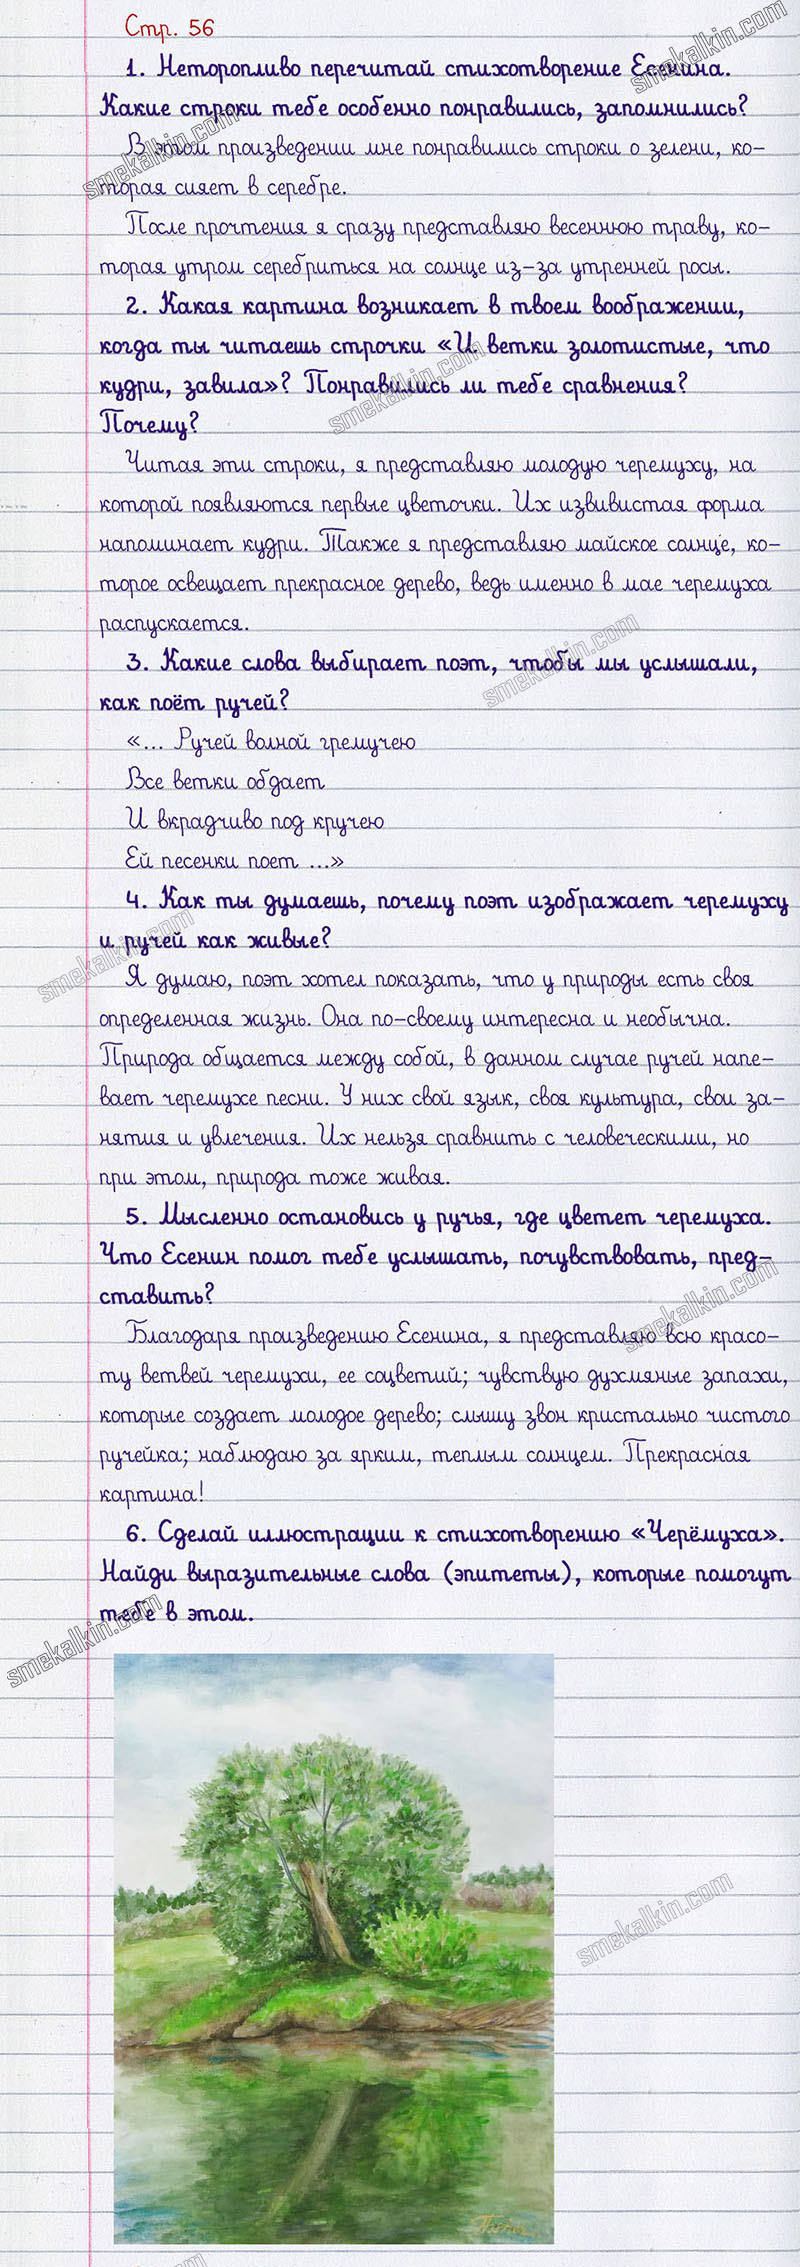 Стр. 56
1. Неторопливо перечитай стихотворение Есенина.
Какие строки тебе особенно понравились, запомнились?
В этом произведении мне понравились строки о зелени, ко-
торая сияет в серебре.
После прочтения я сразу представляю весеннюю траву, ко-
торая утром серебриться на солнце из-за утренней росы.
2. Какая картина возникает в твоем воображении,
когда ты читаешь строчки «И ветки золотистые, что
кудри, завила»? Понравились ли тебе сравнения?
Почему?
Читая эти строки, я представляю молодую черемуху, на
которой появляются первые цветочки. Их извивистая форма
напоминает кудри. Также я представляю майское солнце, ко-
торое освещает прекрасное дерево, ведь именно в мае черемуха
распускается.
3. Какие слова выбирает поэт, чтобы мы услышали,
как поёт ручей?
«... Ручей волной гремучею
Все ветки обдает
И вкрадчиво под кручею
Ей песенки поет ...»
4. Как ты думаешь, почему поэт изображает черемуху
и ручей как живые?
Я думаю, поэт хотел показать, что у природы есть своя
определенная жизнь. Она по-своему интересна и необычна.
Природа общается между собой, в данном случае ручей напе-
вает черемухе песни. У них свой язык, своя культура, свои за-
нятия и увлечения. Их нельзя сравнить с человеческими, но
при этом, природа тоже живая.
5. Мысленно остановись у ручья, где цветет черемуха.
Что Есенин помог тебе услышать, почувствовать, пред-
ставить?
Благодаря произведению Есенина, я представляю всю красо-
ту ветвей черемухи, ее соцветий; чувствую духмяные запахи,
которые создает молодое дерево; слышу звон кристально чистого
ручейка; наблюдаю за ярким, теплым солнцем. Прекрасная
картина!
6. Сделай иллюстрации к стихотворению «Черёмуха».
Найди выразительные слова (эпитеты), которые помогут
тебе в этом.
smekalkin.com
smekalkin.com
smekalkin.com
smekalkin.com
smekalkin.com
smekalkin.com
smekalkin.com
smekalkin.com